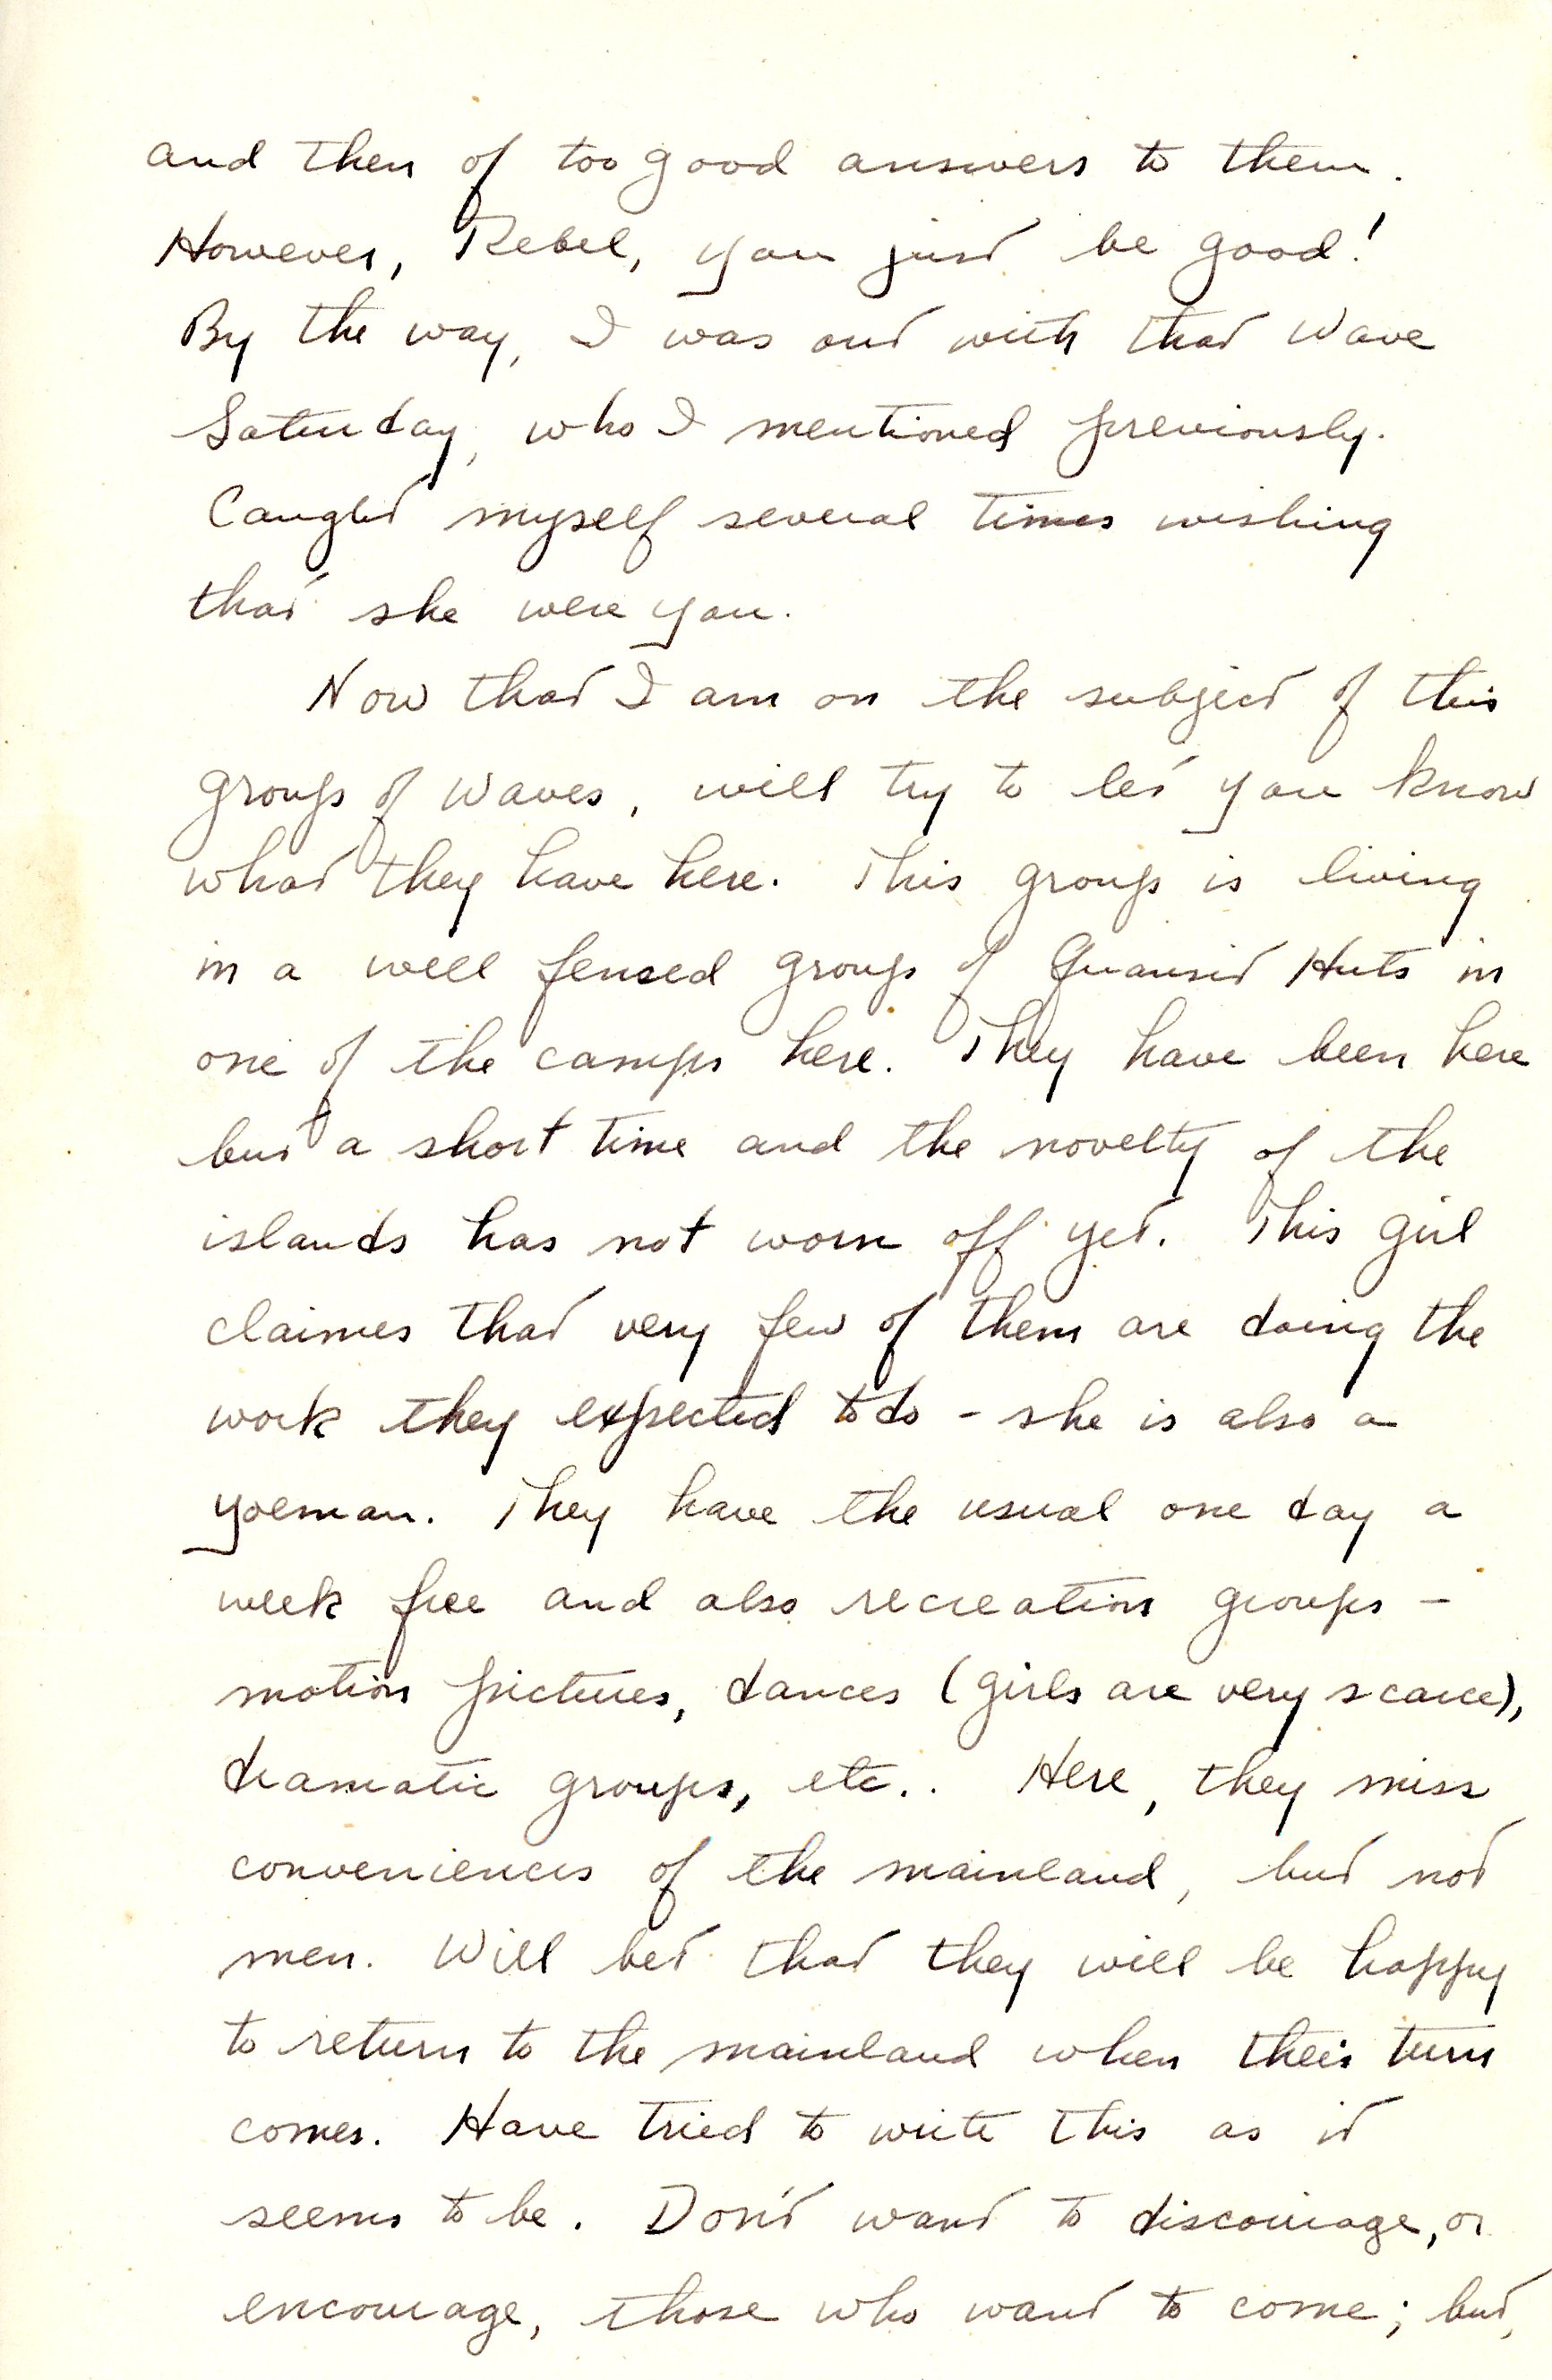 and then of too good answers to them.
However, Rebel, you just be good!
By the way, I was out with that Wave
Saturday, who I mentioned previously.
Caught myself several times wishing
that she were you.
Now that I am on the subject of this
group of Waves, will try to let you know
what they have here. This group is living
in a well fensed group of Quansit Huts in
one of the camps here. They have been here
but a short time and the novelty of the
islands has not worn off yet. This girl
claimes that very few of them are doing the
work they expected to do - she is also a
yoeman. They have the usual one day a
week free and also recreation groups -
motion pictures, dances (girls are very scarce),
dramatic groups, etc.. Here, they miss
conveniences of the mainland, but not
men. Will bet that they will be happy
to return to the mainland when their turn
comes. Have tried to write this as it
seems to be. Don't want to discourage, or
encourage, those who want to come; but,